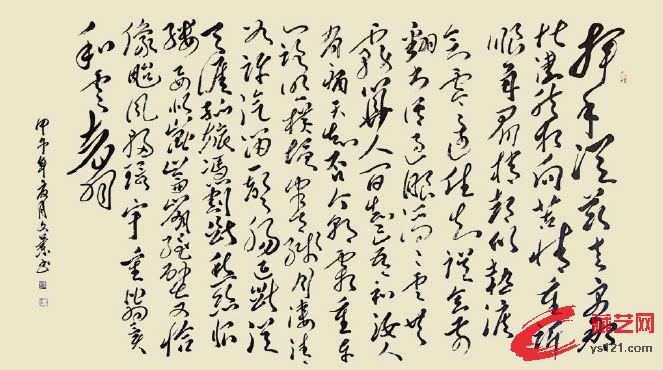 挥手从兹去更那
堪凄然相向苦情重诉
眼角眉梢都似恨热泪
欲零还住知误会前
翻书语过眼滔滔云共
雾算人间知己吾和汝人
有病天知否今朝霜重东
门路照横塘半天残月凄清
如许汽笛一声肠已断从
天涯孤旅凭割断愁思恨
缕要似崑崙崩绝壁又恰
像颱风扫寰宇重比翼
和云翥
甲午年夏月文书
艺网
ys121.com